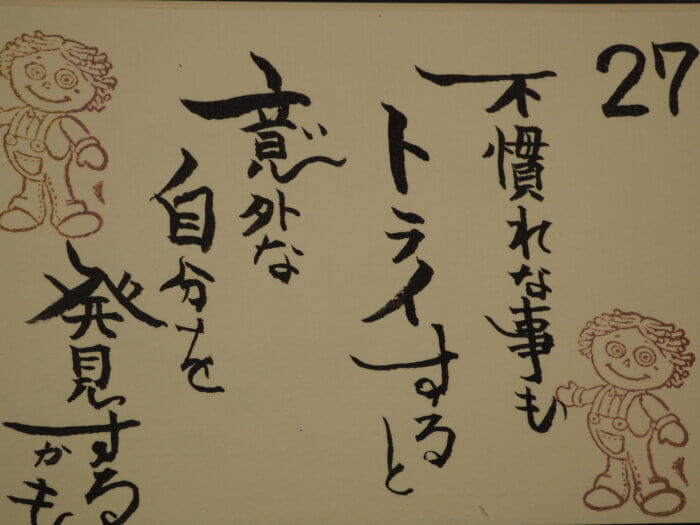 27
不慣れな事も
トライすると
意外な
自分を
発見する
かも